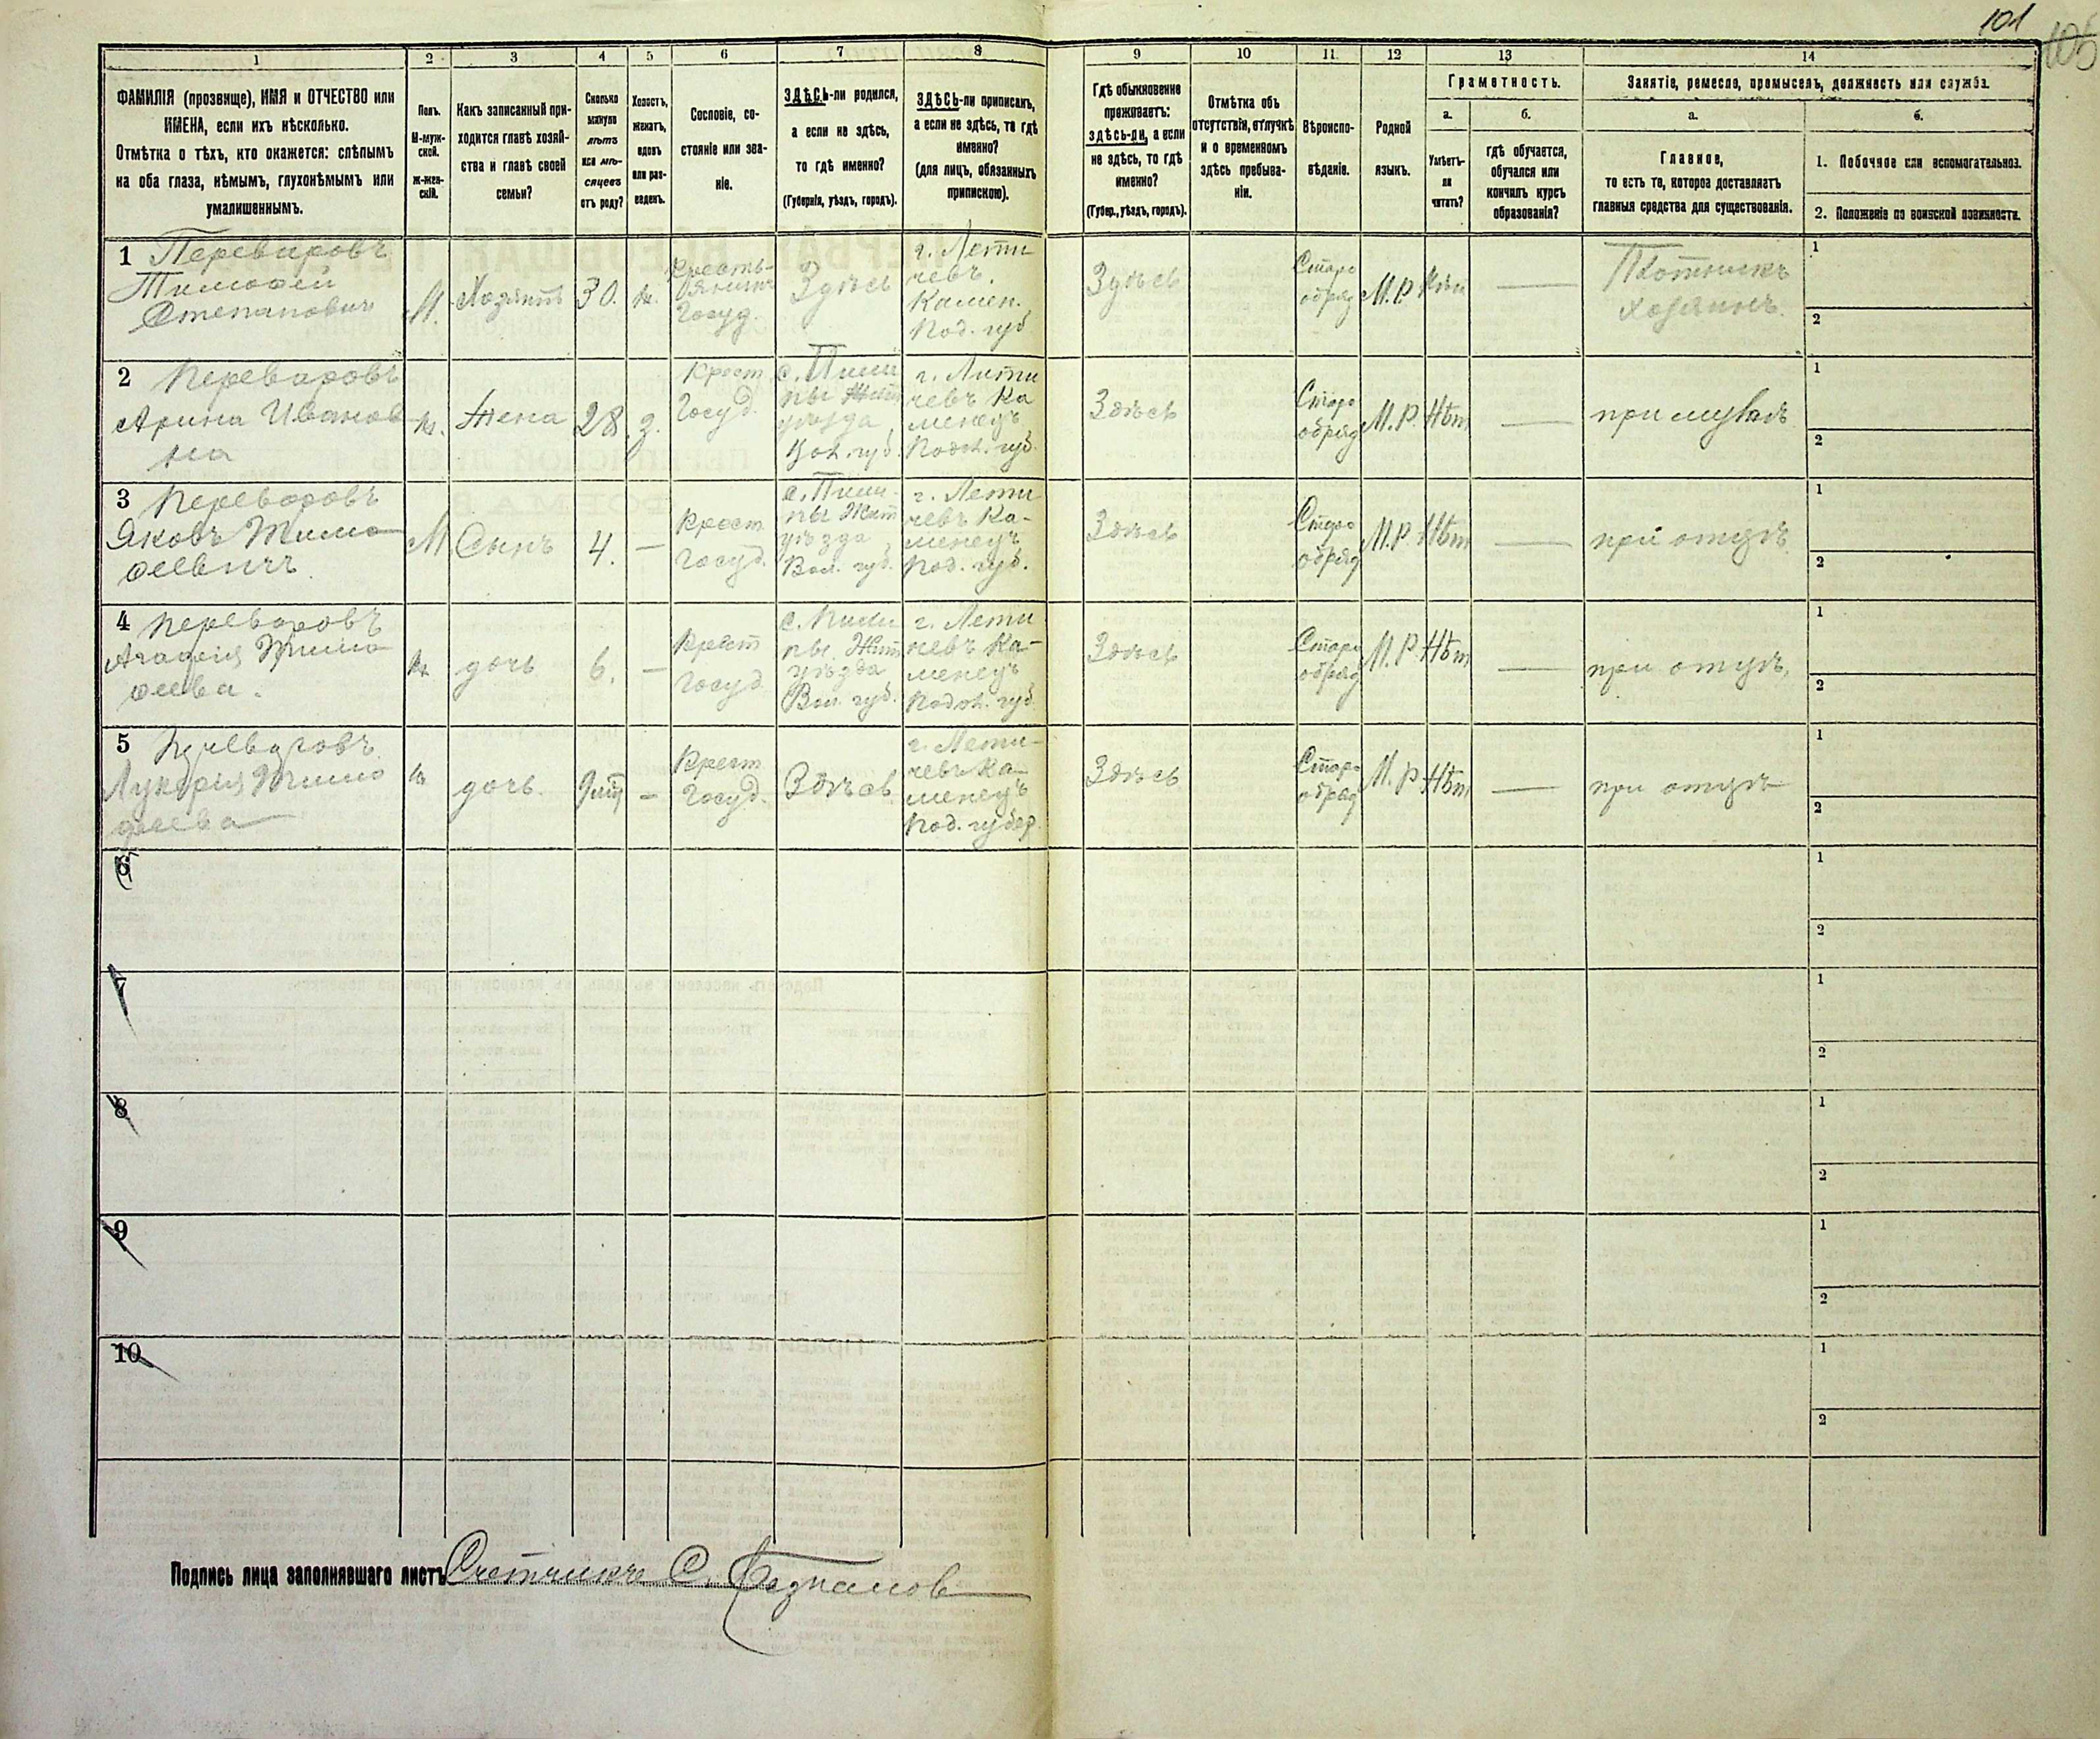 101
105
1
2
3
4
5
6
7
8
9
10
11
12
13
14
ФАМИЛІЯ (прозвище), ИМЯ и ОТЧЕСТВО или
ИМЕНА, если ихъ нѣсколько.
Отмѣтка о тѣхъ, кто окажется: слѣпымъ
на оба глаза, нѣмымъ, глухонѣмымъ или
умалишеннымъ.
Полъ.
М-муж-
ской.
Ж-жен-
скій.
Какъ записанный при-
ходится главѣ хозяй-
ства и главѣ своей
семьи?
Сколько
минуло
лѣтъ
или мѣ-
сяцевъ
отъ роду?
Холостъ,
женатъ,
вдовъ
или раз-
веденъ.
Сословіе, со-
стояніе или зва-
ніе.
ЗДѢСЬ-ли родился,
а если не здѣсь,
то гдѣ именно?
(Губернія, уѣздъ, городъ).
ЗДѢСЬ-ли приписанъ,
а если не здѣсь, то гдѣ
именно?
(для лицъ, обязанныхъ
припискою).
Гдѣ обыкновенно
проживаетъ:
здѣсь-ли, а если
не здѣсь, то гдѣ
именно?
(Губер., уѣздъ, городъ).
Отмѣтка объ
отсутствіи, отлучкѣ
и о временномъ
здѣсь пребыва-
ніи.
Вѣроиспо-
вѣданіе.
Родной
языкъ.
Грамотность.
а.
Умѣетъ-
ли
читать?
б.
гдѣ обучается,
обучался или
кончилъ курсъ
образованія?
Занятіе, ремесло, промыселъ, должность или служба.
а.
Главное,
то есть то, которое доставляетъ
главныя средства для существованія.
б.
1. Побочное или вспомогательное.
2. Положеніе по воинской повинности.
1 Переваровъ
Тимофей
Степанович
М.
Хозяинъ
30.
ж.
Кресть-
янинъ
Госуд.
Здѣсь
г. Лети
чевъ.
Камен.
Под. губ
Здѣсь
Старо
обряд
М.Р.
—
Плотникъ
хозяинъ.
1
2
2 Переваровъ
Арина Иванов
на
ж.
Жена
28
з.
Крест
Госуд.
уѣзда
Вол. губ.
г. Лети
чевъ Ка
менецъ
Подол. губ.
Здѣсь
Старо
обряд
М.Р.
Нѣт
—
при мужѣ
1
2
3 Переваровъ
Яковъ Тимо
феевичъ
М
Сынъ
4.
—
Крест
госуд.
уѣзда
Вол. губ.
г. Лети
чевъ Ка-
менецъ
Под. губ.
Здѣсь
Старо
обряд
М.Р.
Нѣт
—
при отцѣ
1
2
4 Переваровъ
Агафія Тимо
феева.
ж
дочь
6.
—
Крест
госуд
уѣзда
Вол. губ.
г. Лети
чевъ Ка-
менецъ
Подол. губ
Здѣсь
Старо
обряд
М.Р
Нѣт
—
при отцѣ,
1
2
5 Переваровъ
Лукерія Тимо
феева
ж
дочь.
—
Крест
Госуд.
Здѣсь
г. Лети-
чевъ Ка-
менецъ
Под. губер.
Здѣсь
Старо
обряд
М.Р
Нѣт
—
при отцѣ
1
2
6
1
2
7
1
2
8
1
2
9
1
2
10
1
2
Подпись лица заполнявшаго листъ Счетчикъ С.